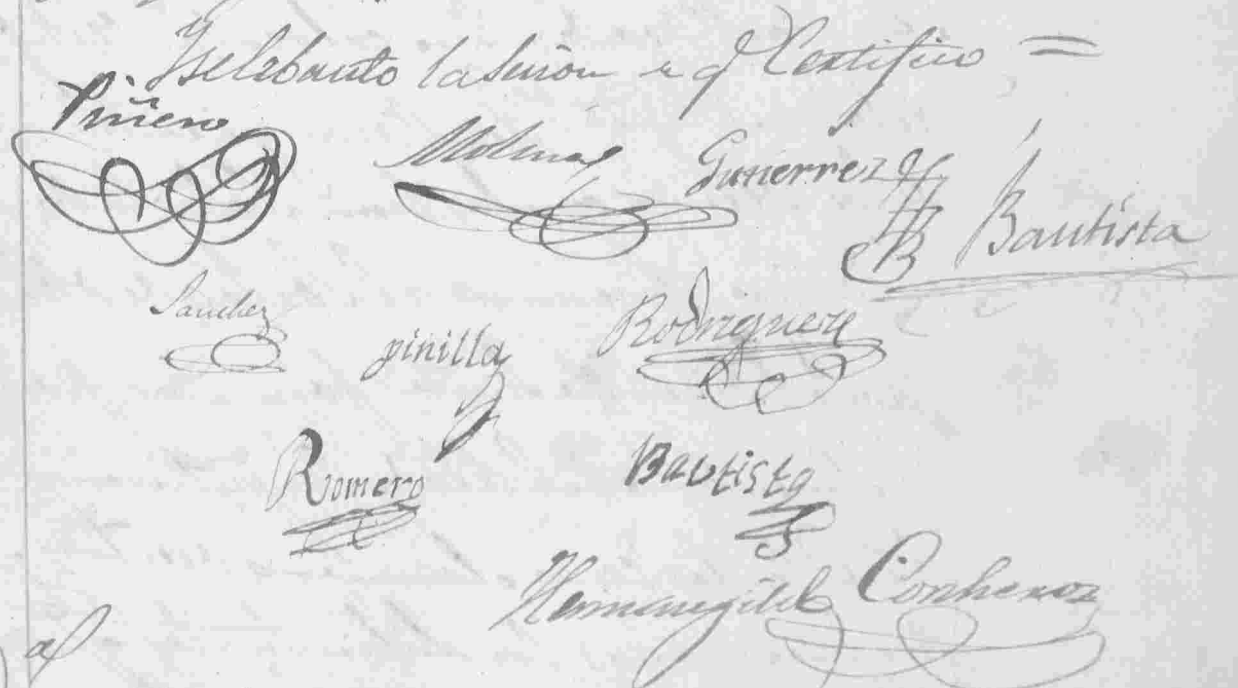 Yselebanto la Sesion de q Certifico =
Piñero
Molina Gutierrez Bautista
Sanchez pinilla Rodriguez
Romero Bautista
Hermenegildo